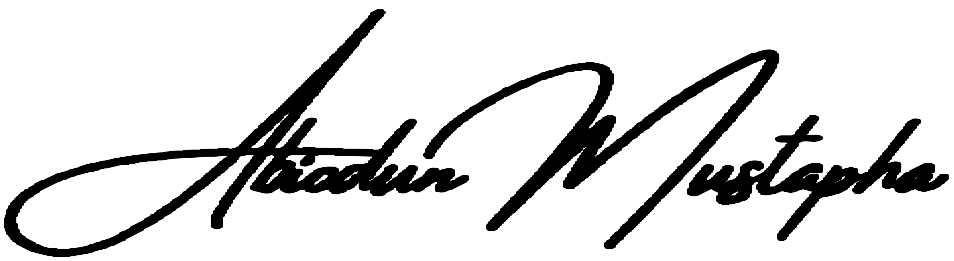 Abiodun Mustapha